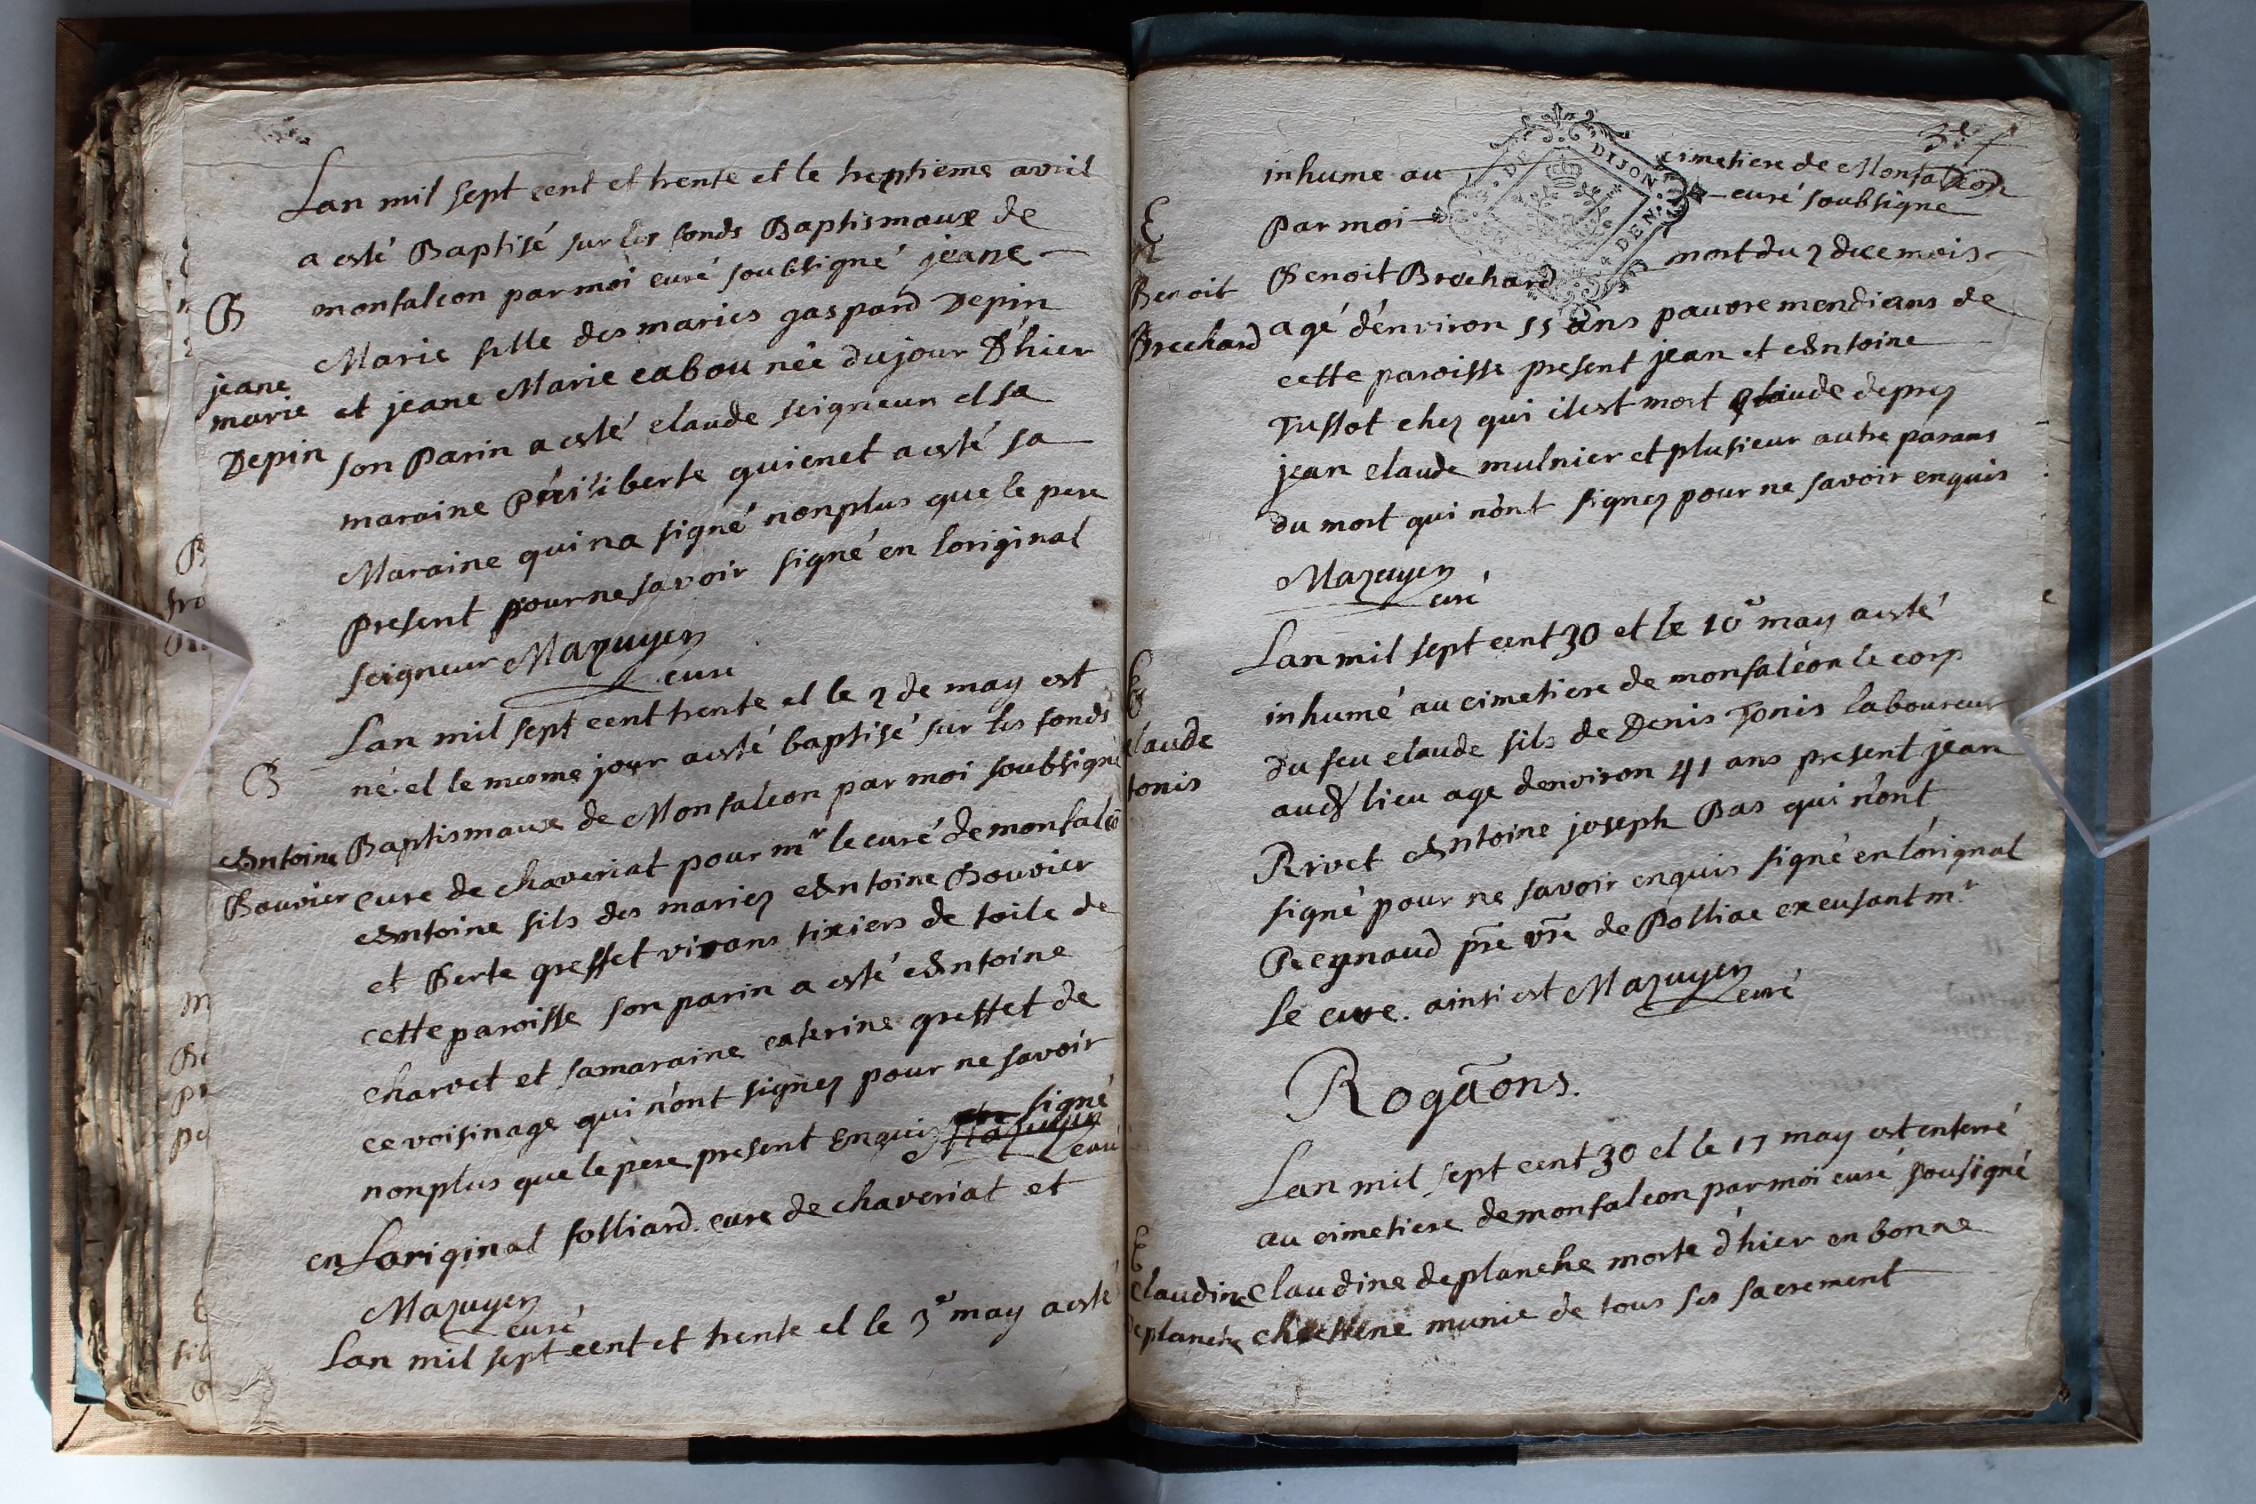 Lan mil sept cent et trente et le treptieme avril
a esté Baptisé sur les fonds Baptismaux de
monfalcon par moi curé soubsigné jeane
B
Marie fille des maries gaspard Depin
jeane
marie
Depin
et jeane Marie cabou née du jour D'hier
son Parin a esté claude seigneur et sa
maraine Philiberte quienet a esté sa
Maraine qui na signé nonplus que le pere
present pour ne savoir signé en loriginal
seigneur Mazuyer
curé
Lan mil sept cent trente et le 2 de may est
né et le mesme jour a esté baptisé sur les fonds
B
Antoine
Bouvier
Baptismaux de Monfalcon par moi soubsigné
curé de chaveriat pour mr le curé de monfalcō
Antoine fils des mariez Antoine Bouvier
et Berte greffet vivans tixiers de toile de
cette paroisse son parin a esté Antoine
charvet et sa maraine caterine greffet de
ce voisinage qui n'ont signez pour ne savoir
nonplus que le père present enquis signé
Mazuyer
curé
en Loriginal folliard curé de chaveriat et
Mazuyer
curé
Lan mil sept cent et trente et le 3e may a esté
inhume au cimetiere de Monfalcon
Par moi curé soubsigne
E
Benoit
Brochard
Benoit Brochard mort du 2 du ce mois
agé d'environ 55 ans pauvre mendians de
cette paroisse present jean et Antoine
Tussot chez qui il est mort claude deprez
jean claude mulnier et plusieur autre parans
du mort qui n'ont signez pour ne savoir enquis
Mazuyer
curé
Lan mil sept cent 30 et le 10e may a esté
inhumé au cimetiere de monfalcon le corp
claude
tonis
du feu claude fils de Denis Tonis laboureur
aud lieu age denviron 41 ans present jean
Rivet Antoine joseph Bas qui n'ont
signé pour ne savoir enquis signé en l'orignal
Reynaud pre vre de Polliac excusant mr
le cure. ainsi est Mazuyer
curé
Rogāons.
Lan mil sept cent 30 et le 17 may est enterré
au cimetiere de monfalcon par moi curé sousigné
E
claudine
deplanche
Claudine deplanche morte d'hier en bonne
munie de tous ses sacrement
DE DIJON
DEN.